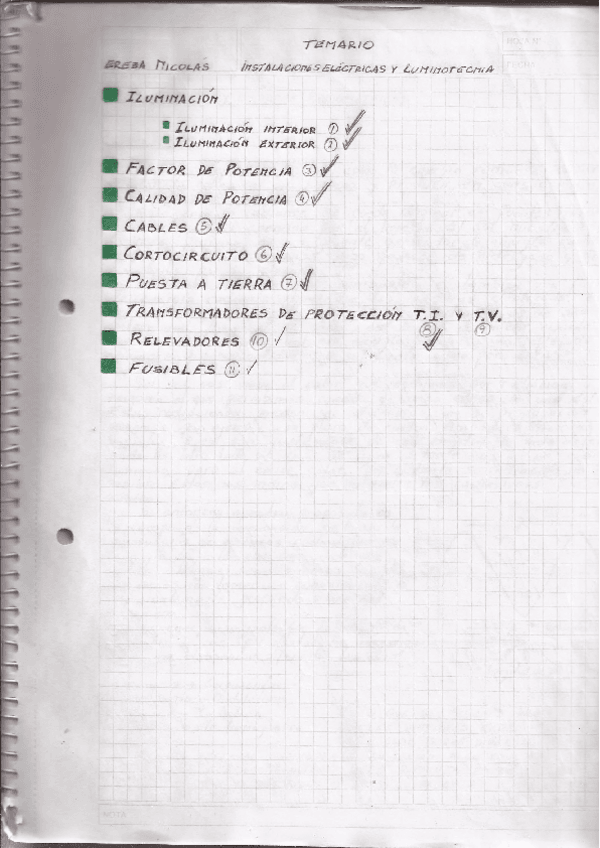 TEMARIO
EREBA NICOLÁS INSTALACIONES ELÉCTRICAS Y LUMINOTECNIA
ILUMINACIÓN
ILUMINACIÓN INTERIOR 1
ILUMINACIÓN EXTERIOR 2
FACTOR DE POTENCIA 3
CALIDAD DE POTENCIA 4
CABLES 5
CORTOCIRCUITO 6
PUESTA A TIERRA 7
TRANSFORMADORES DE PROTECCIÓN T.I. Y T.V.
8 9
RELEVADORES 10
FUSIBLES 11